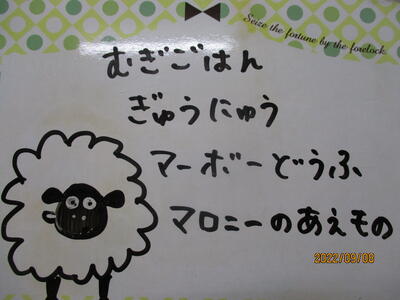 Seize the fortune by the forelock.
むぎごはん
ぎゅうにゅう
マーボーどうふ
マロニーのあえもの
2022/09/08